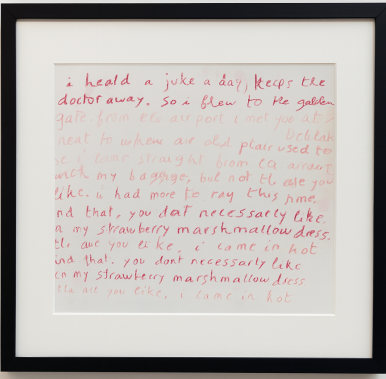 i heald a juke a day, keeps the
doctor away. So i flew to the golden
gate from the airport i met you at?
Delilah
next to where our old place used to
i came straight from the
with my baggage, but not the one you
like. i had more to say this time
nd that, you dont necessarly like
n my strawberry marshmallow dress.
the one you like. i came in hot
ind that. you dont necessarly like
on my strawberry marshmallow dress
the one you like. i came in hot